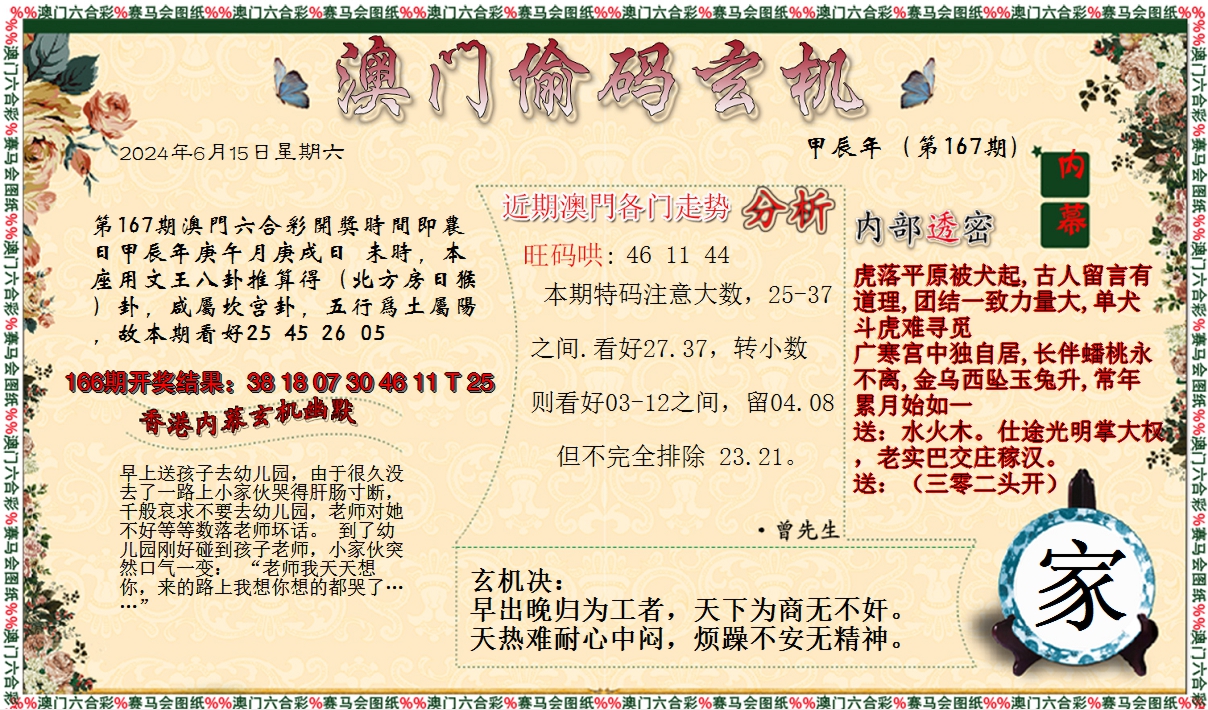 %%澳门六合彩%赛马会图纸%%澳门六合彩%赛马会图纸%%澳门六合彩%赛马会图纸%%澳门六合彩%赛马会图纸%%澳门六合彩%赛马会图纸%%澳门六合彩%赛马会图纸%%
澳门偷码玄机
2024年6月15日星期六
甲辰年（第167期）
第167期澳門六合彩開獎時間即農
日甲辰年庚午月庚戌日 未時，本
座用文王八卦推算得（北方房日猴
）卦，咸屬坎宫卦，五行爲土屬陽
，故本期看好25 45 26 05
166期开奖结果：38 18 07 30 46 11 T 25
香港内幕玄机幽默
早上送孩子去幼儿园，由于很久没
去了一路上小家伙哭得肝肠寸断，
千般哀求不要去幼儿园，老师对她
不好等等数落老师坏话。 到了幼
儿园刚好碰到孩子老师，小家伙突
然口气一变： “老师我天天想
你，来的路上我想你想的都哭了…
…”
近期澳門各门走势 分析
旺码哄: 46 11 44
本期特码注意大数，25-37
之间.看好27.37，转小数
则看好03-12之间，留04.08
但不完全排除 23.21。
·曾先生
玄机决：
早出晚归为工者，天下为商无不奸。
天热难耐心中闷，烦躁不安无精神。
内幕
内部透密
虎落平原被犬起,古人留言有
道理,团结一致力量大,单犬
斗虎难寻觅
广寒宫中独自居,长伴蟠桃永
不离,金乌西坠玉兔升,常年
累月始如一
送：水火木。仕途光明掌大权
，老实巴交庄稼汉。
送：（三零二头开）
家
%%澳门六合彩%赛马会图纸%%澳门六合彩%赛马会图纸%%澳门六合彩%赛马会图纸%%澳门六合彩%赛马会图纸%%澳门六合彩%赛马会图纸%%澳门六合彩%赛马会图纸%%